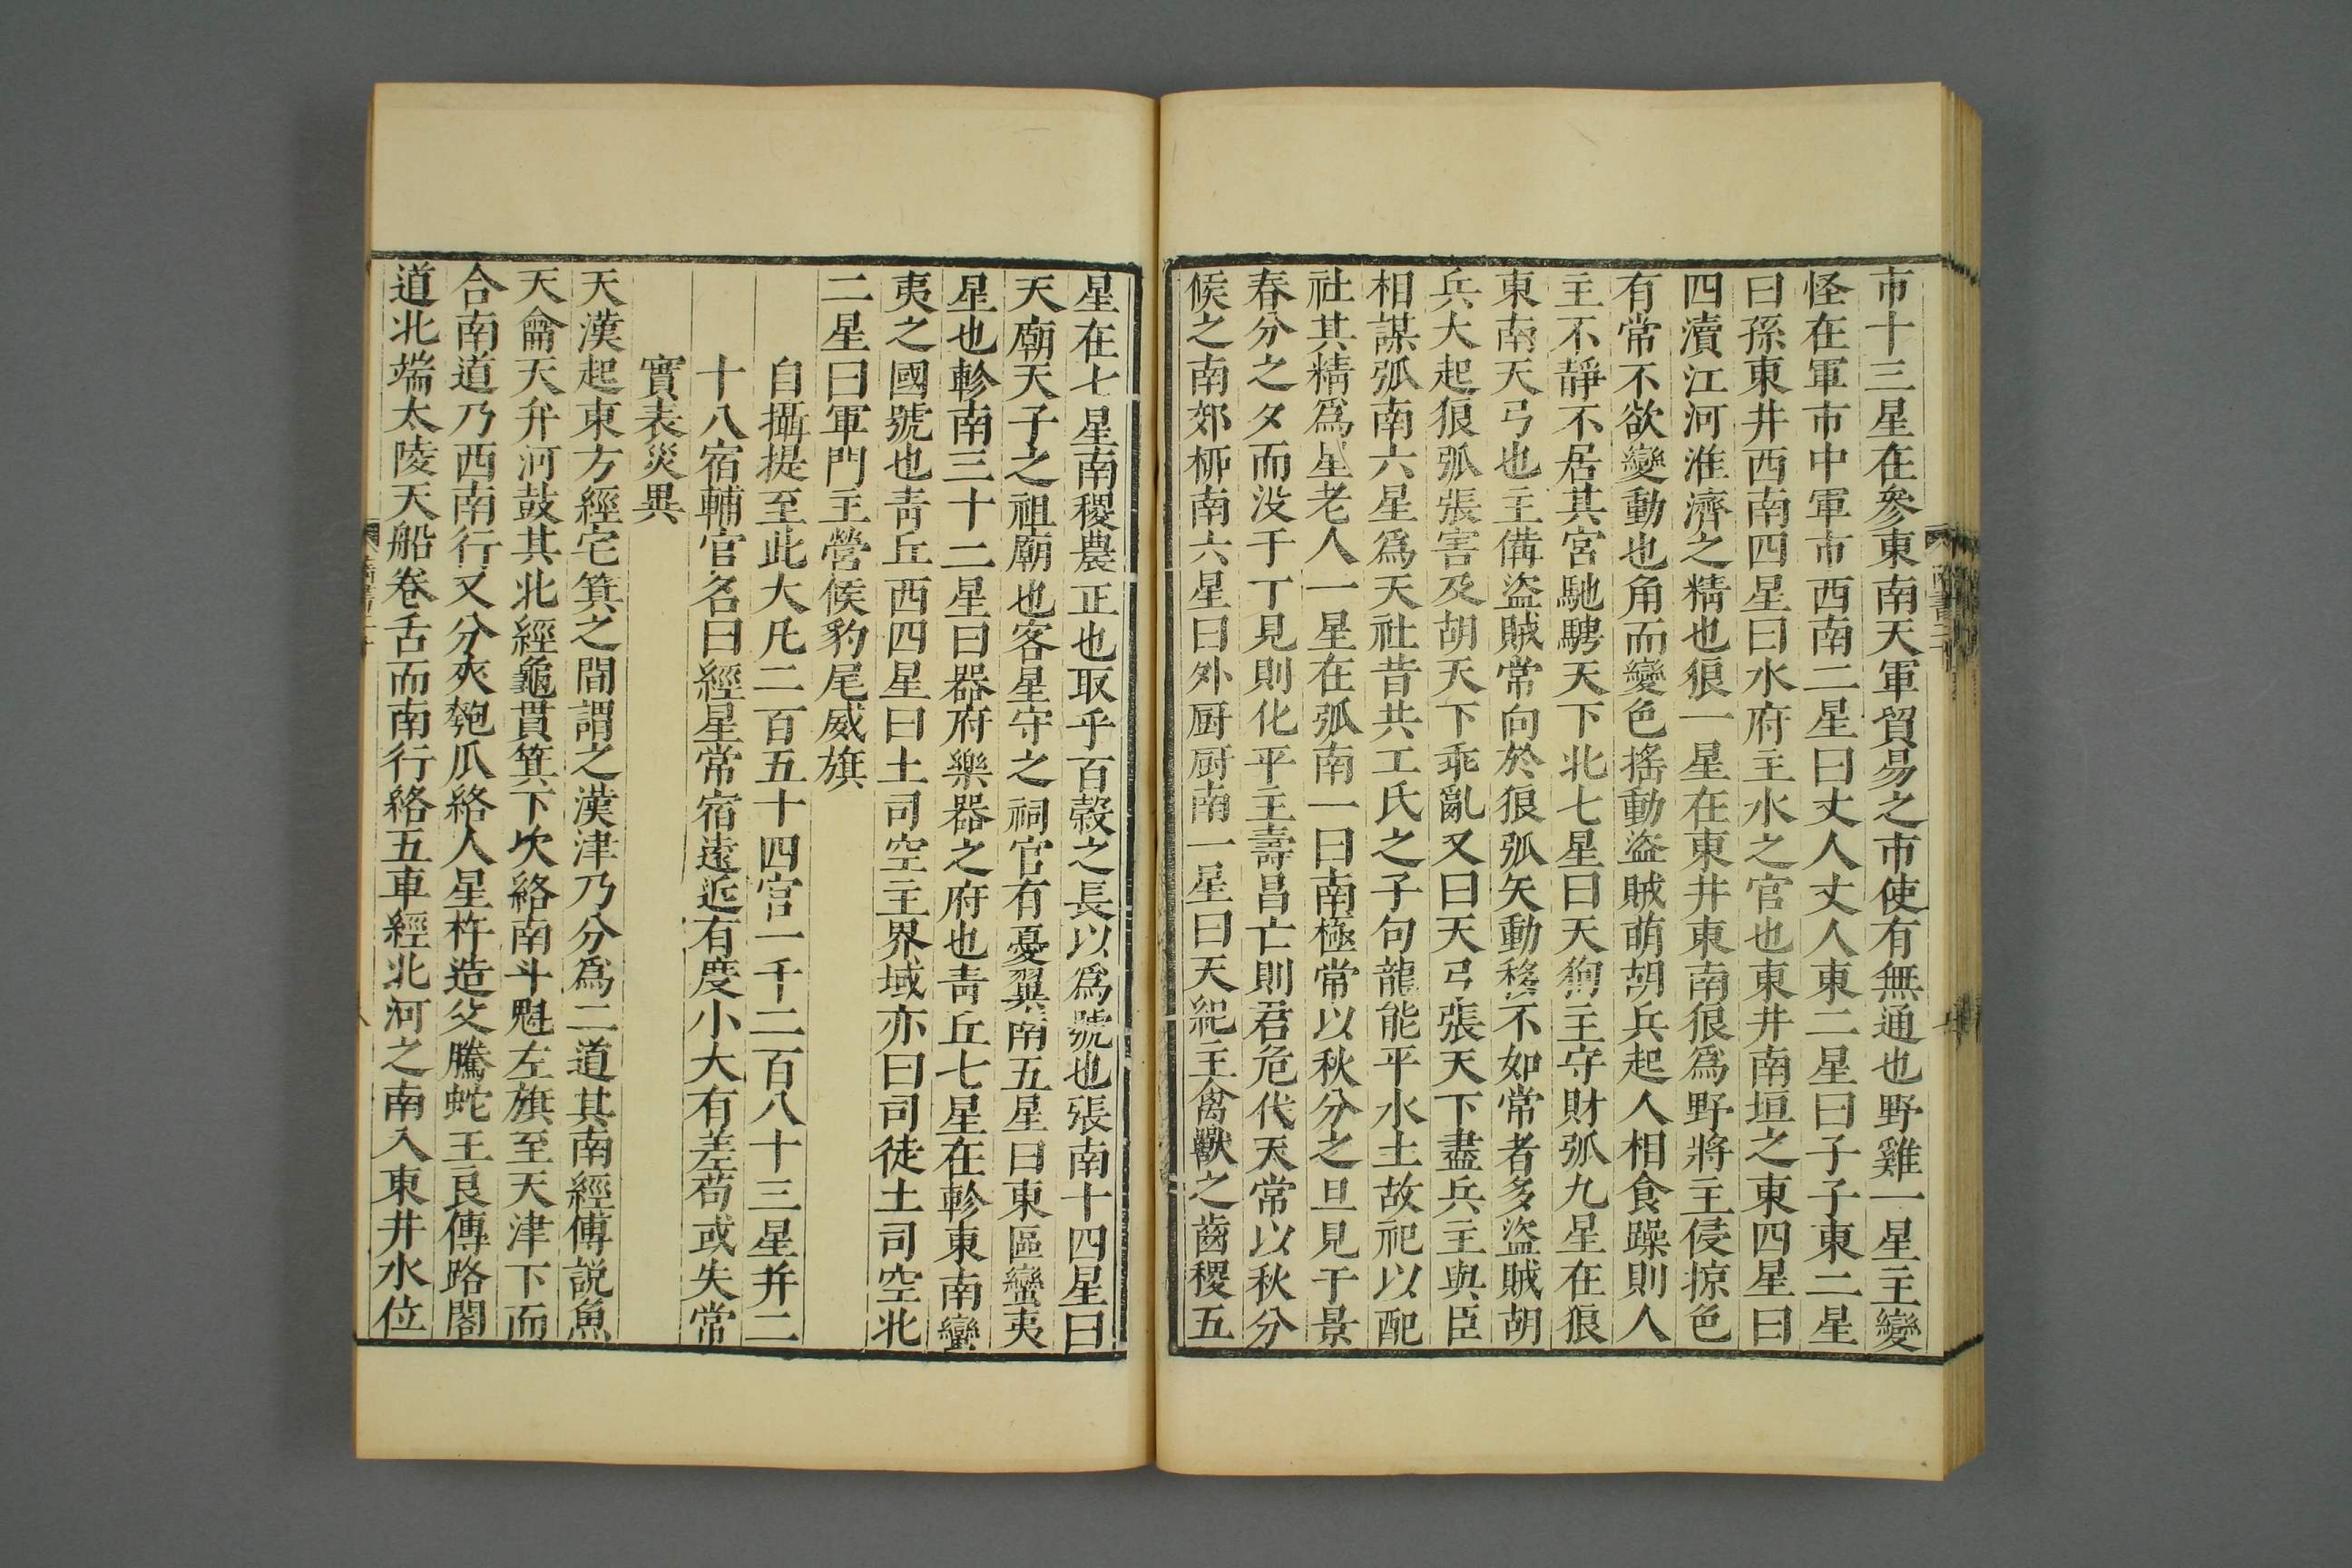 市十三星在參東南天軍貿易之市使有無通也野雞一星主變
怪在軍市中軍市西南二星曰丈人丈人東二星曰子子東二星
曰孫東井西南四星曰水府主水之官也東井南垣之東四星曰
四瀆江河淮濟之精也狼一星在東井東南狼爲野將主侵掠色
有常不欲變動也角而變色搖動盜賊萌胡兵起人相食躁則人
主不靜不居其宮馳騁天下北七星曰天狗主守財弧九星在狼
東南天弓也主備盜賊常向於狼弧矢動移不如常者多盜賊胡
兵大起狼弧張害及胡天下乖亂又曰天弓張天下盡兵主與臣
相謀弧南六星爲天社昔共工氏之子句龍能平水土故祀以配
社其精爲星老人一星在弧南一曰南極常以秋分之旦見于景
春分之夕而没于丁見則化平主壽昌亡則君危代天常以秋分
候之南郊柳南六星曰外厨厨南一星曰天紀主禽獸之齒稷五
星在七星南稷農正也取乎百穀之長以爲號也張南十四星曰
天廟天子之祖廟也客星守之祠官有憂翼南五星曰東區蠻夷
星也軫南三十二星曰器府樂器之府也青丘七星在軫東南蠻
夷之國號也青丘西四星曰土司空主界域亦曰司徒土司空北
二星曰軍門主營候豹尾威旗
自攝提至此大凡二百五十四官一千二百八十三星并二
十八宿輔官名曰經星常宿遠近有度小大有差苟或失常
實表災異
天漢起東方經尾箕之間謂之漢津乃分爲二道其南經傅説魚
天龠天弁河鼓其北經龜貫箕下次絡南斗魁左旗至天津下而
合南道乃西南行又分夾匏瓜絡人星杵造父騰蛇王良傅路閣
道北端太陵天船卷舌而南行絡五車經北河之南入東井水位